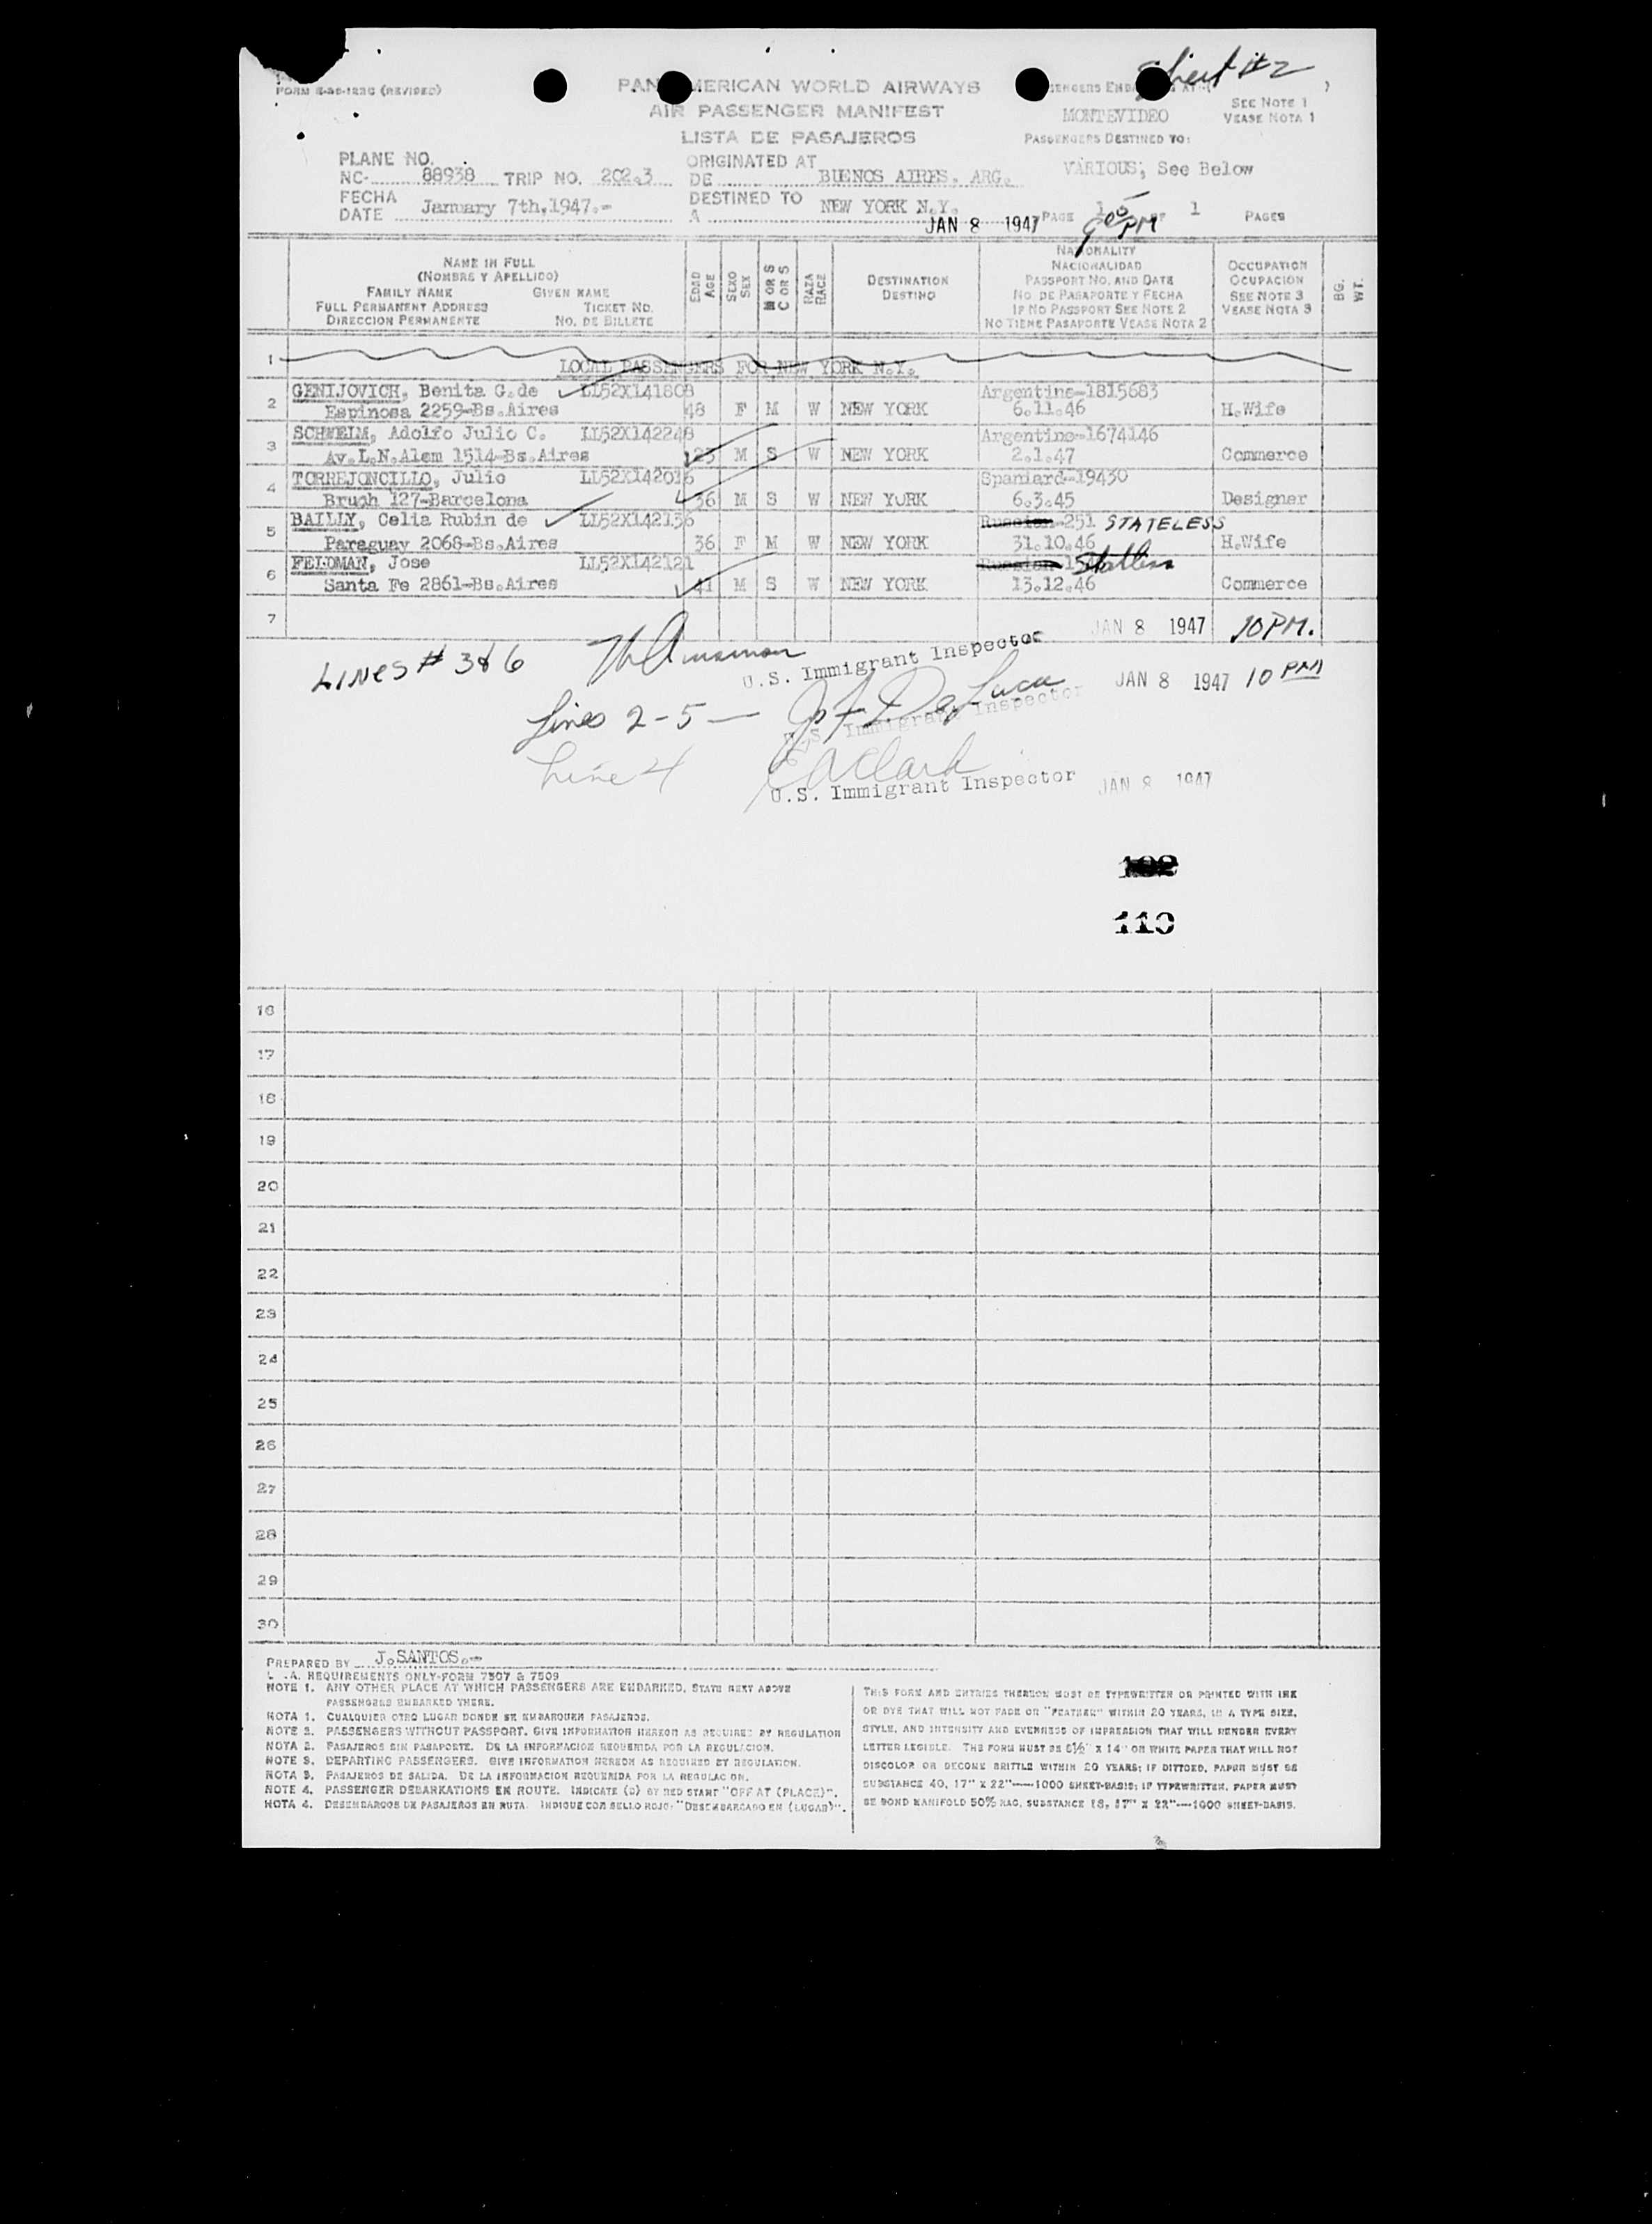 Sheet #2
FORM (REVISED)
PAN AMERICAN WORLD AIRWAYS
AIR PASSENGER MANIFEST
LISTA DE PASAJEROS
MONTEVIDEO
SEE NOTE 1
VEASE NOTA 1
PASSENGERS DESTINED TO:
VARIOUS; See Below
PLANE NO.
NC- 88938 TRIP NO. 202.3
ORIGINATED AT
DE BUENOS AIRES. ARG.
FECHA
DATE January 7th, 1947.-
DESTINED TO
A NEW YORK N.Y.
JAN 8 1947
PAGE 1 OF 1 PAGES
PM
NAME IN FULL
(NOMBRE Y APELLIDO)
FAMILY NAME GIVEN NAME
FULL PERMANENT ADDRESS TICKET NO.
DIRECCION PERMANENTE NO. DE BILLETE
EDAD AGE
SEXO SEX
M OR S
C OR S
RAZA RACE
DESTINATION
DESTINO
NATIONALITY
NACIONALIDAD
PASSPORT NO. AND DATE
NO. DE PASAPORTE Y FECHA
IF NO PASSPORT SEE NOTE 2
NO TIENE PASAPORTE VEASE NOTA 2
OCCUPATION
OCUPACION
SEE NOTE 3
VEASE NOTA 3
BG. WT.
1 LOCAL PASSENGERS FOR NEW YORK N.Y.
GENIJOVICH, Benita G.de LL52X141808 Argentine-1815683
2 Espinosa 2259-Bs.Aires 48 F M W NEW YORK 6.11.46 H.Wife
SCHWELM, Adolfo Julio C. LL52X142248 Argentine-1674146
3 Av.L.N.Alem 1514-Bs.Aires 23 M S W NEW YORK 2.1.47 Commerce
TORREJONCILLO, Julio LL52X142016 Spaniard-19430
4 Bruch 127-Barcelona 36 M S W NEW YORK 6.3.45 Designer
BAILLY, Celia Rubin de LL52X142156 Russian-251 STATELESS
5 Paraguay 2068-Bs.Aires 36 F M W NEW YORK 31.10.46 H.Wife
FELDMAN, Jose LL52X142121 Russian Stateless
6 Santa Fe 2861-Bs.Aires 41 M S W NEW YORK 13.12.46 Commerce
7 JAN 8 1947 10 PM.
LINES # 3 & 6
U.S. Immigrant Inspector JAN 8 1947 10 PM
Lines 2-5 — J F DeLuca
U.S. Immigrant Inspector
Line 4 EA Clark
U.S. Immigrant Inspector JAN 8 1947
110
16
17
18
19
20
21
22
23
24
25
26
27
28
29
30
PREPARED BY J.SANTOS.-
REQUIREMENTS ONLY-FORM 7507 & 7509
NOTE 1. ANY OTHER PLACE AT WHICH PASSENGERS ARE EMBARKED, STATE NEXT ABOVE
PASSENGERS EMBARKED THERE.
NOTA 1. CUALQUIER OTRO LUGAR DONDE SE EMBARQUEN PASAJEROS.
NOTE 2. PASSENGERS WITHOUT PASSPORT. GIVE INFORMATION HEREON AS REQUIRED BY REGULATION
NOTA 2. PASAJEROS SIN PASAPORTE. DE LA INFORMACION REQUERIDA POR LA REGULACION.
NOTE 3. DEPARTING PASSENGERS. GIVE INFORMATION HEREON AS REQUIRED BY REGULATION.
NOTA 3. PASAJEROS DE SALIDA. DE LA INFORMACION REQUERIDA POR LA REGULACION.
NOTE 4. PASSENGER DEBARKATIONS EN ROUTE. INDICATE (D) BY RED STAMP "OFF AT (PLACE)".
NOTA 4. DESEMBARCOS DE PASAJEROS EN RUTA. INDIQUE CON SELLO ROJO: "DESEMBARCADO EN (LUGAR)".
THIS FORM AND ENTRIES THEREON MUST BE TYPEWRITTEN OR PRINTED WITH INK
OR DYE THAT WILL NOT FADE OR "FEATHER" WITHIN 20 YEARS, IN A TYPE SIZE,
STYLE, AND INTENSITY AND EVENNESS OF IMPRESSION THAT WILL RENDER EVERY
LETTER LEGIBLE. THE FORM MUST BE 8½" X 14" ON WHITE PAPER THAT WILL NOT
DISCOLOR OR BECOME BRITTLE WITHIN 20 YEARS; IF DITTOED, PAPER MUST BE
SUBSTANCE 40, 17" X 22"----1000 SHEET-BASIS; IF TYPEWRITTEN, PAPER MUST
BE BOND MANIFOLD 50% RAG, SUBSTANCE 18, 17" X 22"----1000 SHEET-BASIS.